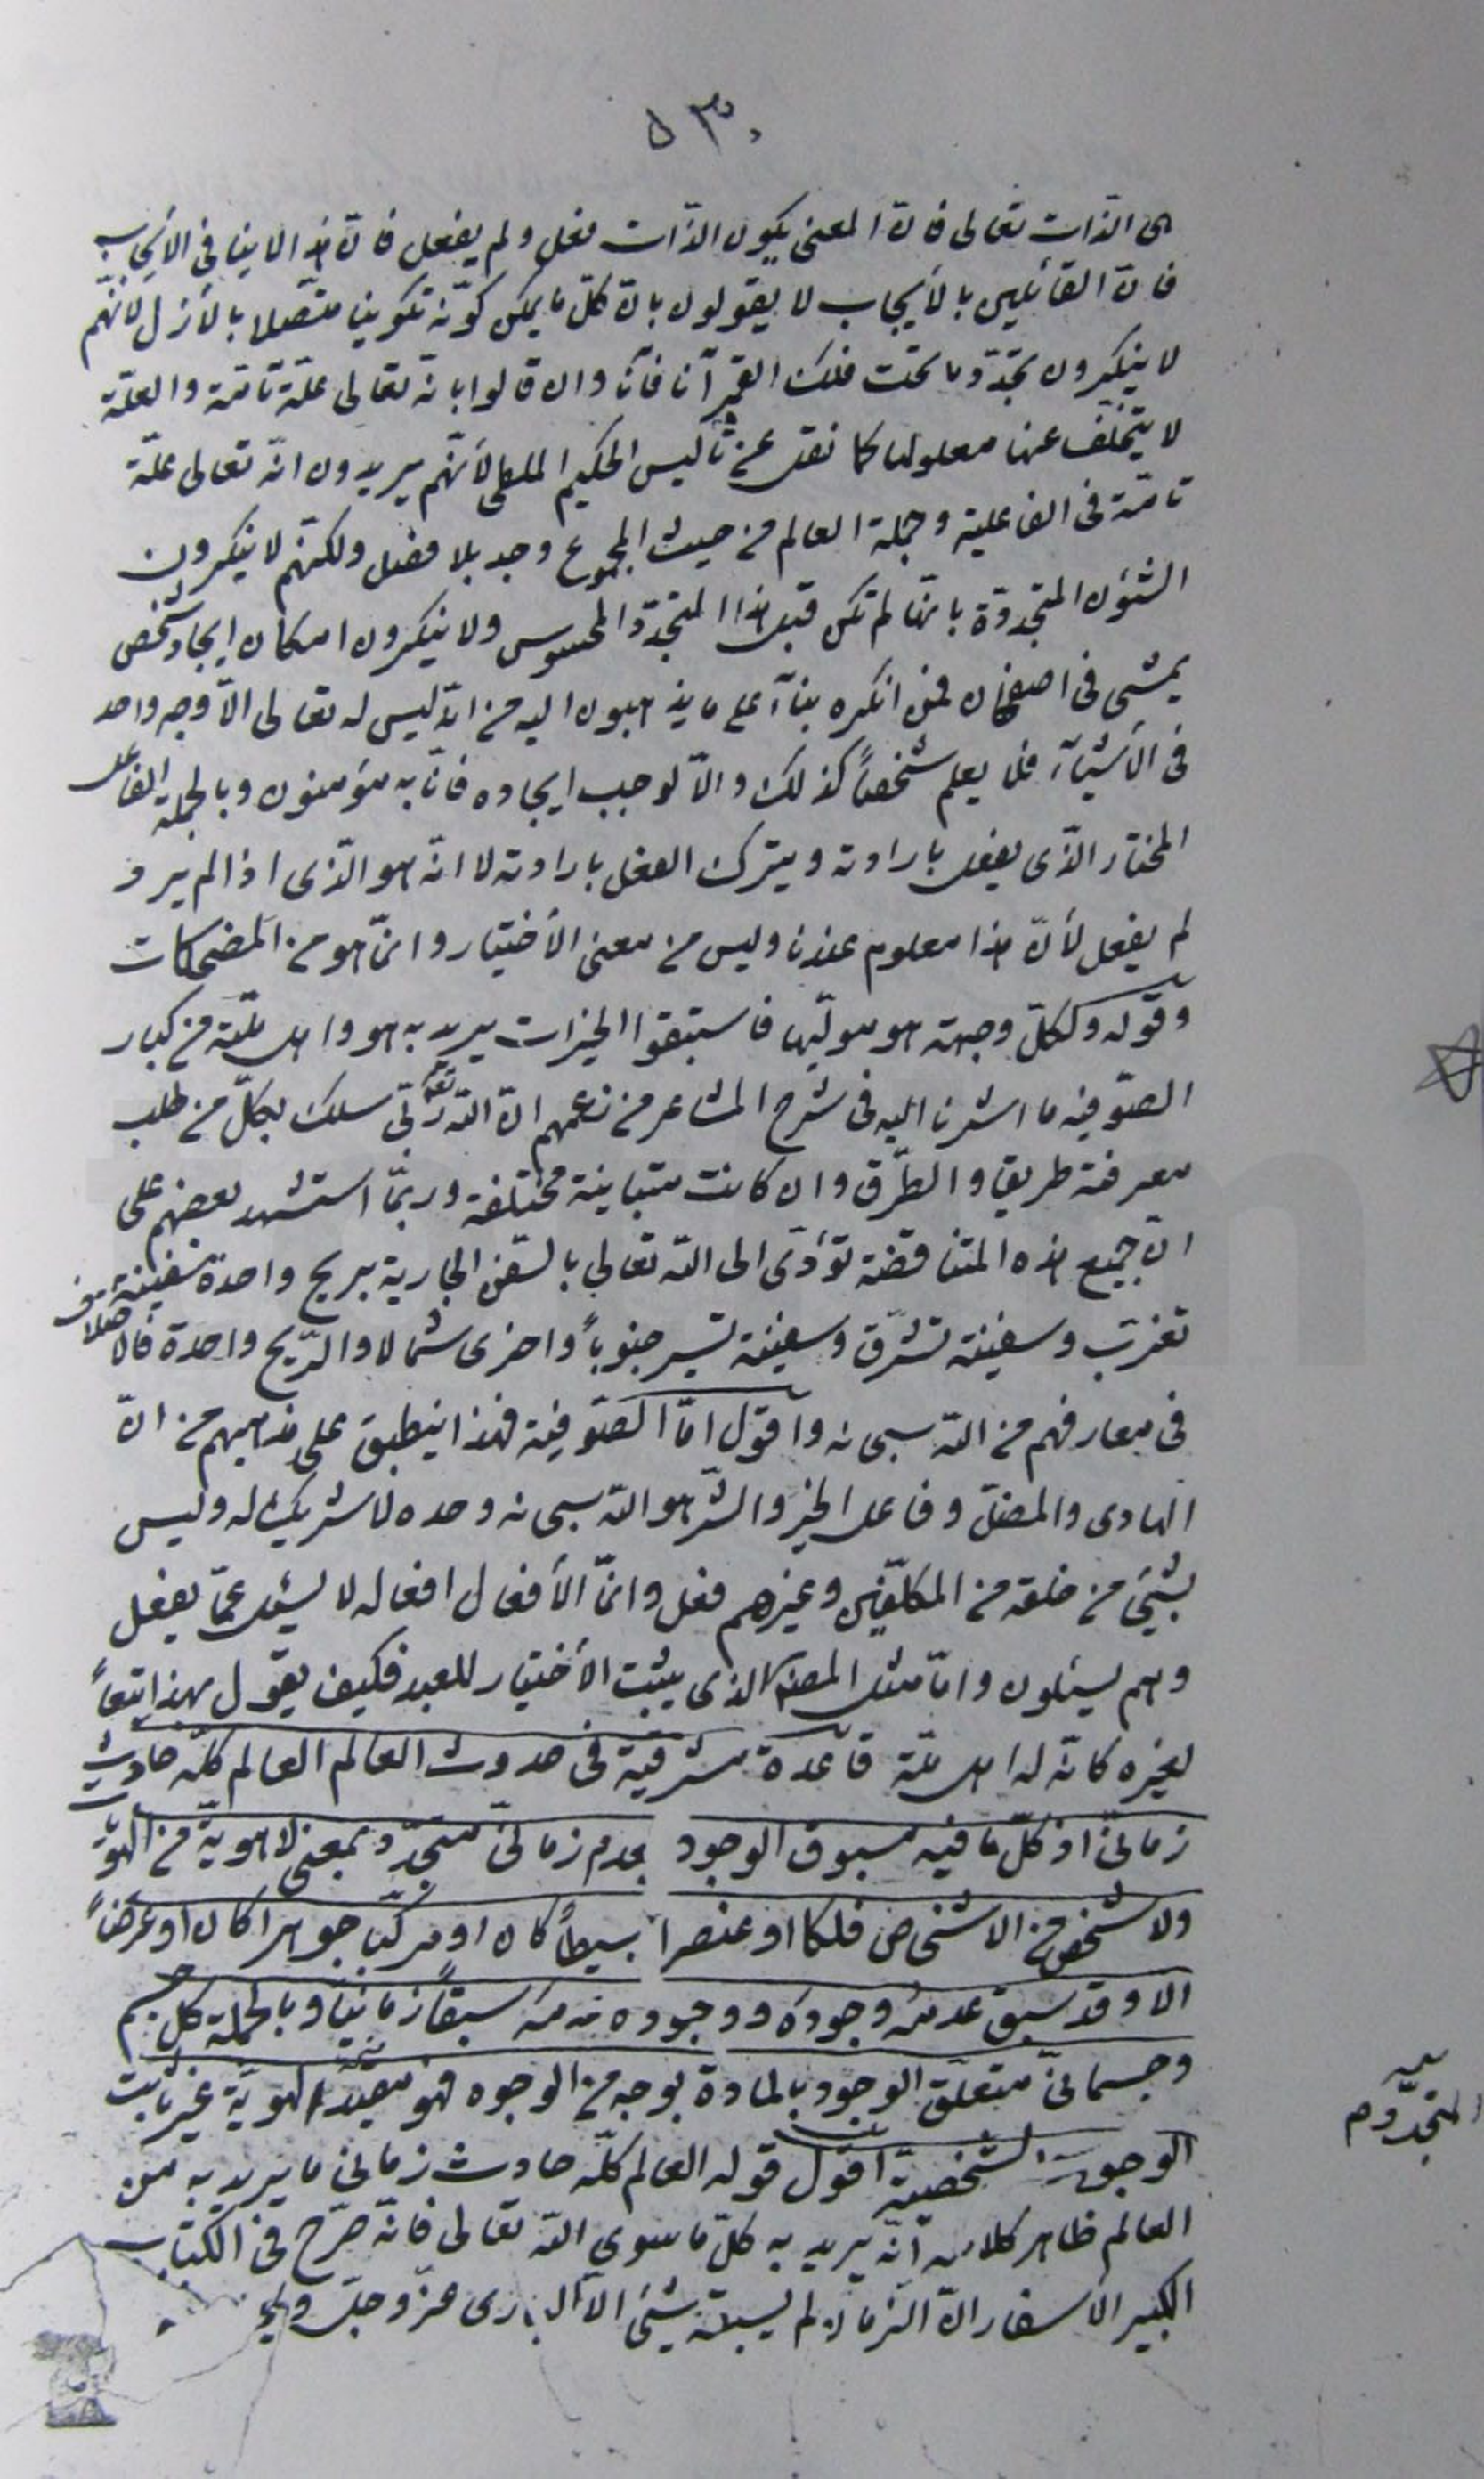 ٥٣٠
الذّات تعالى فانّ المعنى بكون الذّات فعل ولم يفعل فانّ هذا لا ينافى الأيجاب
فانّ القآئلين بالأيجاب لا يقولون بانّ كلّ ما يمكن كوّنه تكوينا متّصلا بالأزل لانّهم
لا ينكرون تجدّد ما تحت فلك القمر آنا فآنا وان قالوا بانّه تعالى علّة تآمّة والعلّة
لا يتخلّف عنها معلولها كما نقل عن ثاليس الحكيم الملطى لأنّهم يريدون انّه تعالى علّة
تامّة فى الفاعلية وجملة العالم من حيث المجموع وجد بلا فصل ولكنّهم لا ينكرون
الشئون المتجدّدة بانّها لم تكن قبل هذا المتجدّد المحسوس ولا ينكرون امكان ايجاد شخص
يمشى فى اصفهان فمن انكره بنآء على ما يذهبون اليه من انّه ليس له تعالى الاّ وجه واحد
فى الأشيآء فلا يعلم شخصاً كذلك والاّ لوجب ايجاده فانّا به مؤمنون وبالجملة الفاعل
المختار الّذى يفعل بارادته ويترك الفعل بارادته لا انّه هو الّذى اذا لم يرد
لم يفعل لأنّ هذا معلوم عندنا وليس من معنى الأختيار وانّما هو من المضحكات
وقوله ولكلّ وجهة هو مولّيها فاستبقوا الخيرات يريد به هو واهل ملّته من كبار
الصّوفيّة ما اشرنا اليه فى شرح المشاعر من زعمهم انّ اللّه سلك بكلّ من طلب
معرفته طريقا والطّرق وان كانت متباينة مختلفة وربّما استشهد بعضهم على
انّ جميع هذه المتناقضة تؤدّى الى اللّه تعالى بالسّفن الجارية بريح واحدة سفينة
تغرّب وسفينة تشرّق وسفينة تسير جنوباً واخرى شمالا والرّيح واحدة فالاختلاف
فى معارفهم من اللّه سبحانه واقول امّا الصّوفيّة فهذا ينطبق على مذاهبهم من انّ
الهادى والمضلّ وفاعل الخير والشّر هو اللّه سبحانه وحده لا شريك له وليس
بشئ من خلقه من المكلّفين وغيرهم فعل وانّما الأفعال افعاله لا يسئل عمّا يفعل
وهم يسئلون وامّا مثل المصنّف الذى يثبت الأختيار للعبد فكيف يقول بهذا تبعاً
لغيره كانّه له اهل ملّة قاعدة مشرقيّة فى حدوث العالم العالم كلّه حادث
زمانىّ اذ كلّ ما فيه مسبوق الوجود بعدم زمانىّ متجدّد بمعنى لا هويّة من الهويّات
ولا شخص من الاشخاص فلكا او عنصرا بسيطاً كان او مركّبا جوهرا كان او عرضاً
الا وقد سبق عدمه وجوده ووجوده عدمه سبقاً زمانيّا وبالجملة كل جسم
وجسمانىّ متعلّق الوجود بالمادة بوجه من الوجوه فهو متجدّد الهويّة غير ثابت
الوجود والشّخصيّة اقول قوله العالم كلّه حادث زمانى ما يريد به من
العالم ظاهر كلامه انّه يريد به كلّ ما سوى اللّه تعالى فانّه صرّح فى الكتاب
الكبير الأسفار انّ الزمان لم يسبقه شئ الاّ البارى عزّ وجلّ
المتجدّد